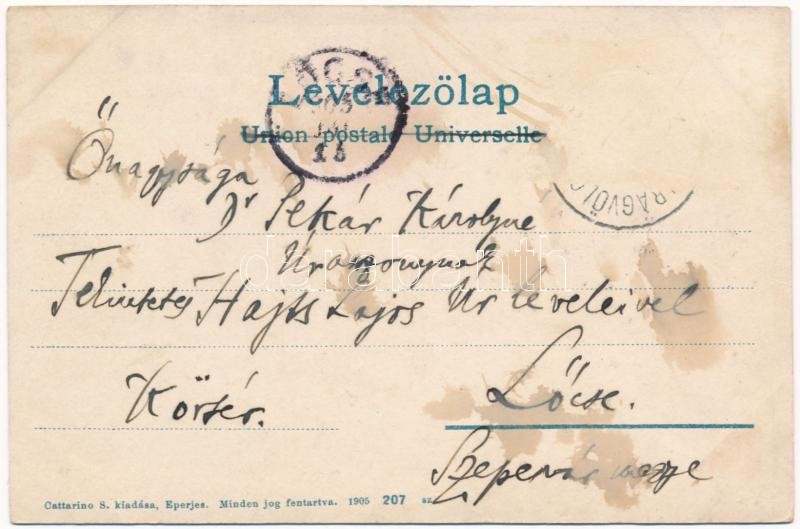 LŐCSE
905
15
Levelezőlap
Union postale Universelle
RÁGVÖL
Őnagysága
Dr Pekár Károlyne
Úrasszonynak
Tekintetes Hajts Lajos Úr leveleivel
Körtér.
Lőcse.
Szepesvármegye
darabanth
Cattarino S. kiadása, Eperjes. Minden jog fentartva. 1905 207 sz